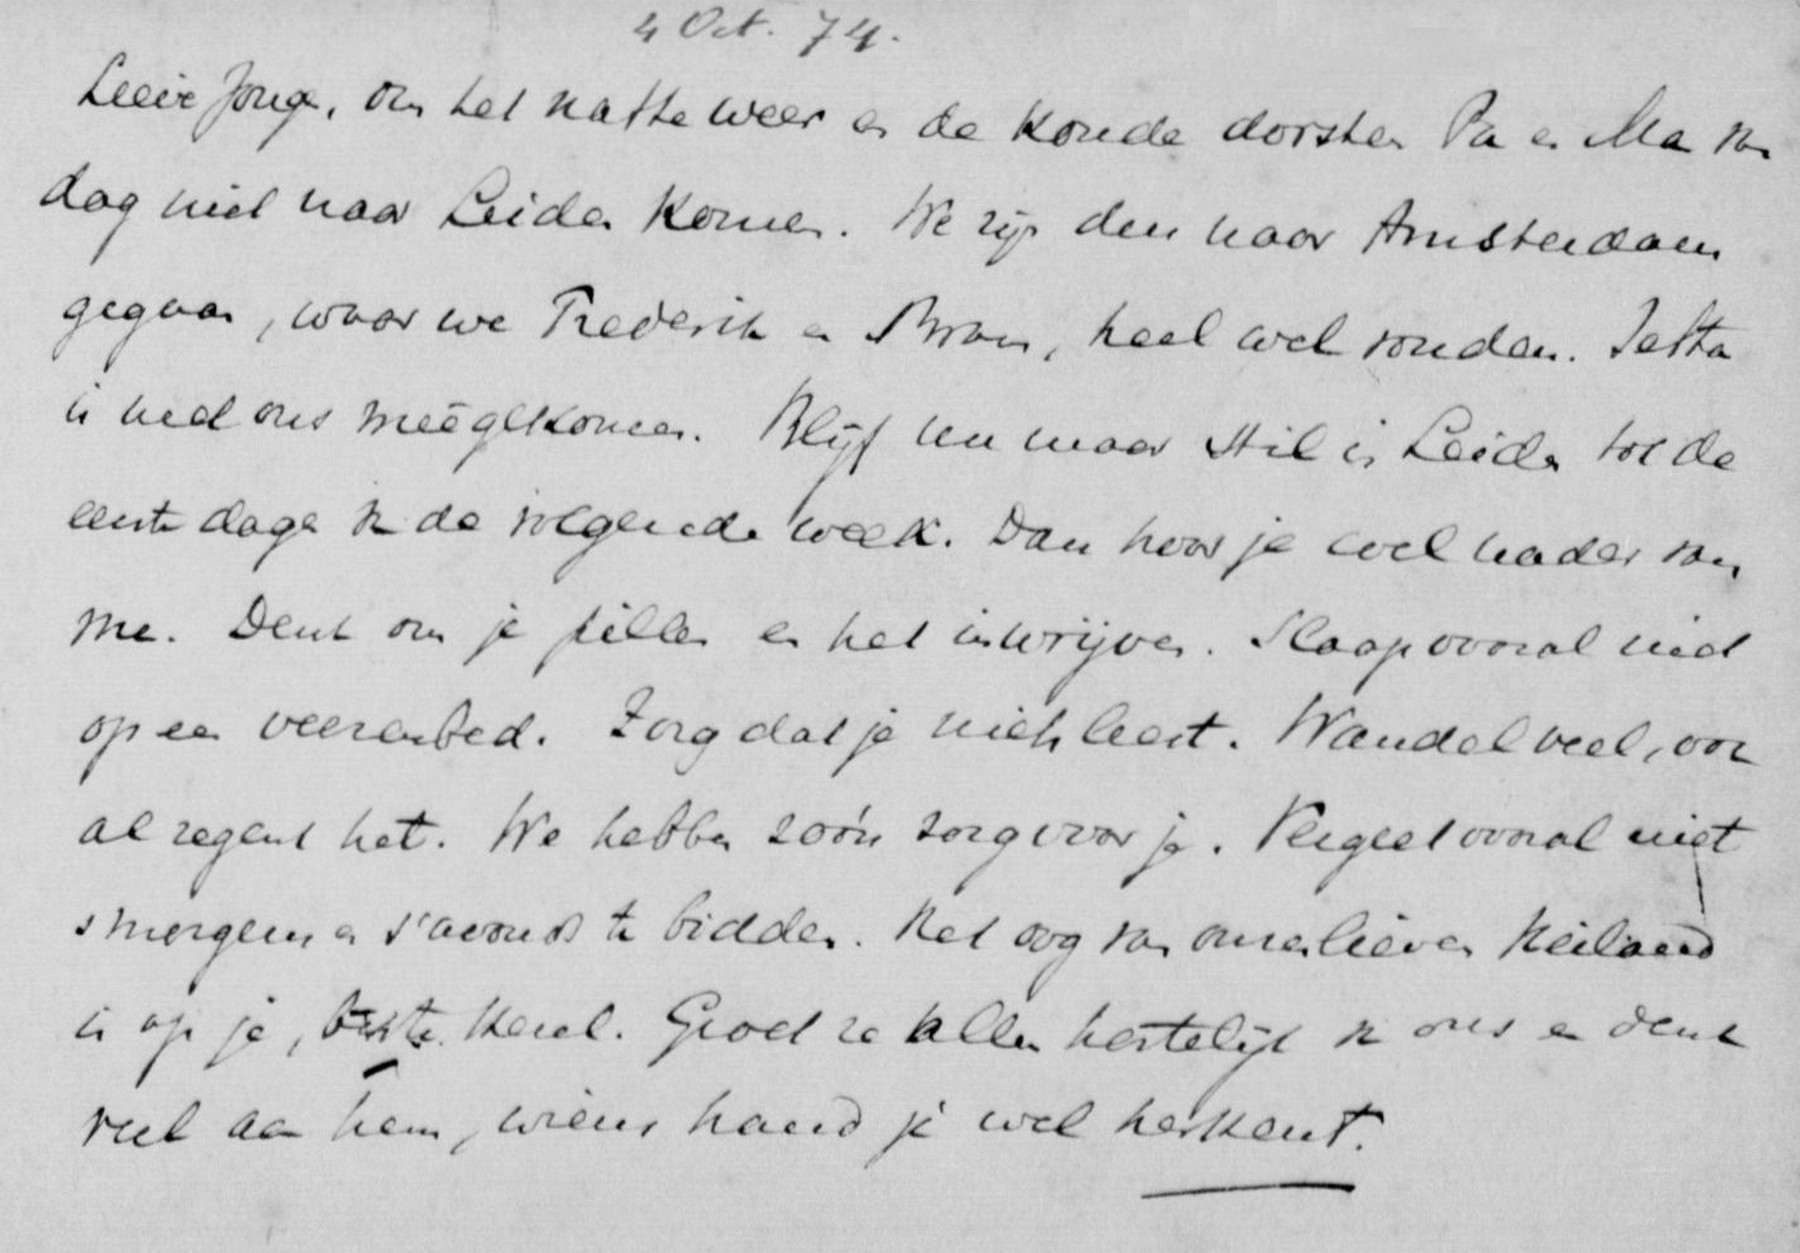 4 Oct. 74.
Lieve Jonge, om het natte weer en de koude dorsten Pa en Ma van
dag niet naar Leiden komen. We zijn dan naar Amsterdam
gegaan, waar we Frederik en Bram, heel wel vonden. Jetta
is met ons meêgekomen. Blijf nu maar stil in Leiden tot de
eerste dagen van de volgende week. Dan hoor je wel nader van
me. Denk om je pillen en het inwrijven. Slaap vooral niet
op een veerenbed. Zorg dat je niets leest. Wandel veel, voor
al regent het. We hebben zoo'n zorg voor je. Vergeet vooral niet
smorgens en s'avonds te bidden. Het oog van onzen lieven Heiland
is op je, beste Kerel. Groet ze allen hartelijk van ons en denk
veel aan hem, wiens hand je wel herkent.